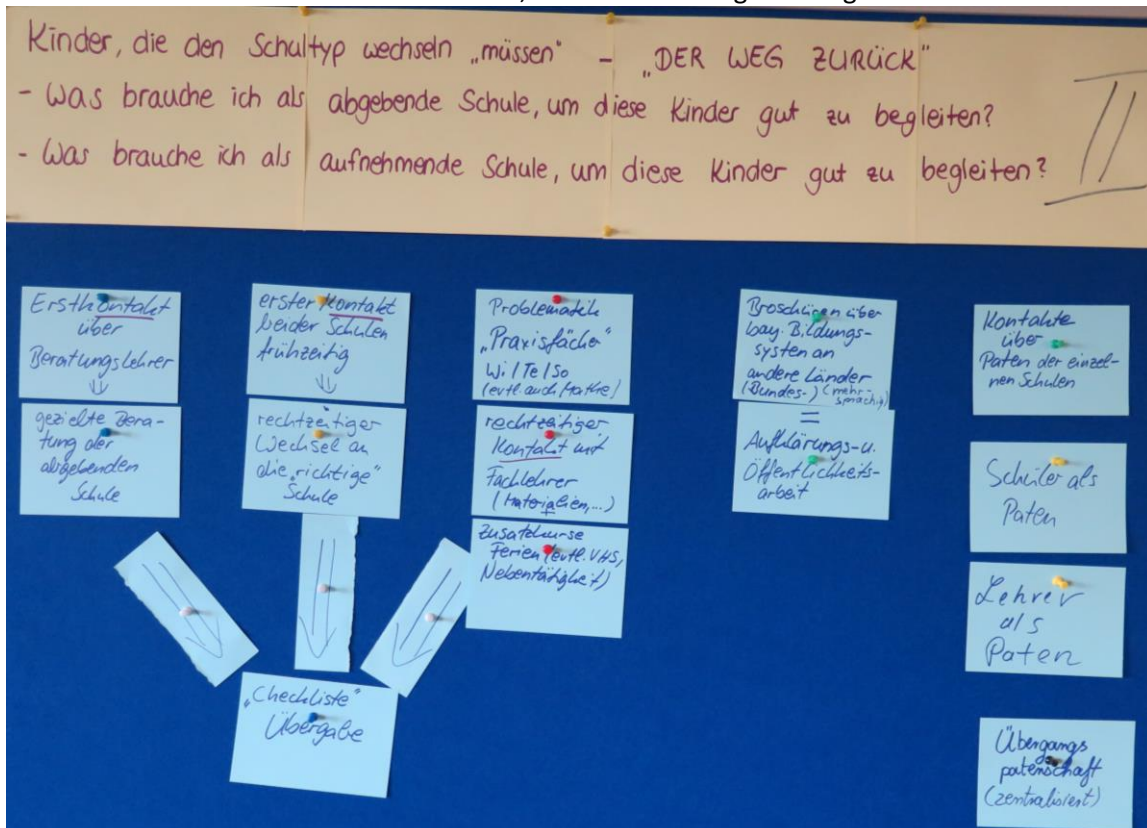 Kinder, die den Schultyp wechseln „müssen" – „DER WEG ZURÜCK"
- Was brauche ich als abgebende Schule, um diese Kinder gut zu begleiten?
- Was brauche ich als aufnehmende Schule, um diese Kinder gut zu begleiten?
II
Erstkontakt
über
Beratungslehrer
gezielte Bera-
tung der
abgebenden
Schule
erster Kontakt
beider Schulen
frühzeitig
rechtzeitiger
Wechsel an
die „richtige"
Schule
„Checkliste"
Übergabe
Problematik
„Praxisfächer"
Wi/Te/So
(evtl. auch Mathe)
rechtzeitiger
Kontakt mit
Fachlehrer
(Materialien,...)
Zusatzkurse
Ferien (evtl. VHS,
Nebentätigkeit)
Broschüren über
bay. Bildungs-
system an
andere Länder
(Bundes-) (mehr-
sprachig)
=
Aufklärungs- u.
Öffentlichkeits-
arbeit
Kontakte
über
Paten der einzel-
nen Schulen
Schüler als
Paten
Lehrer
als
Paten
Übergangs
patenschaft
(zentralisiert)